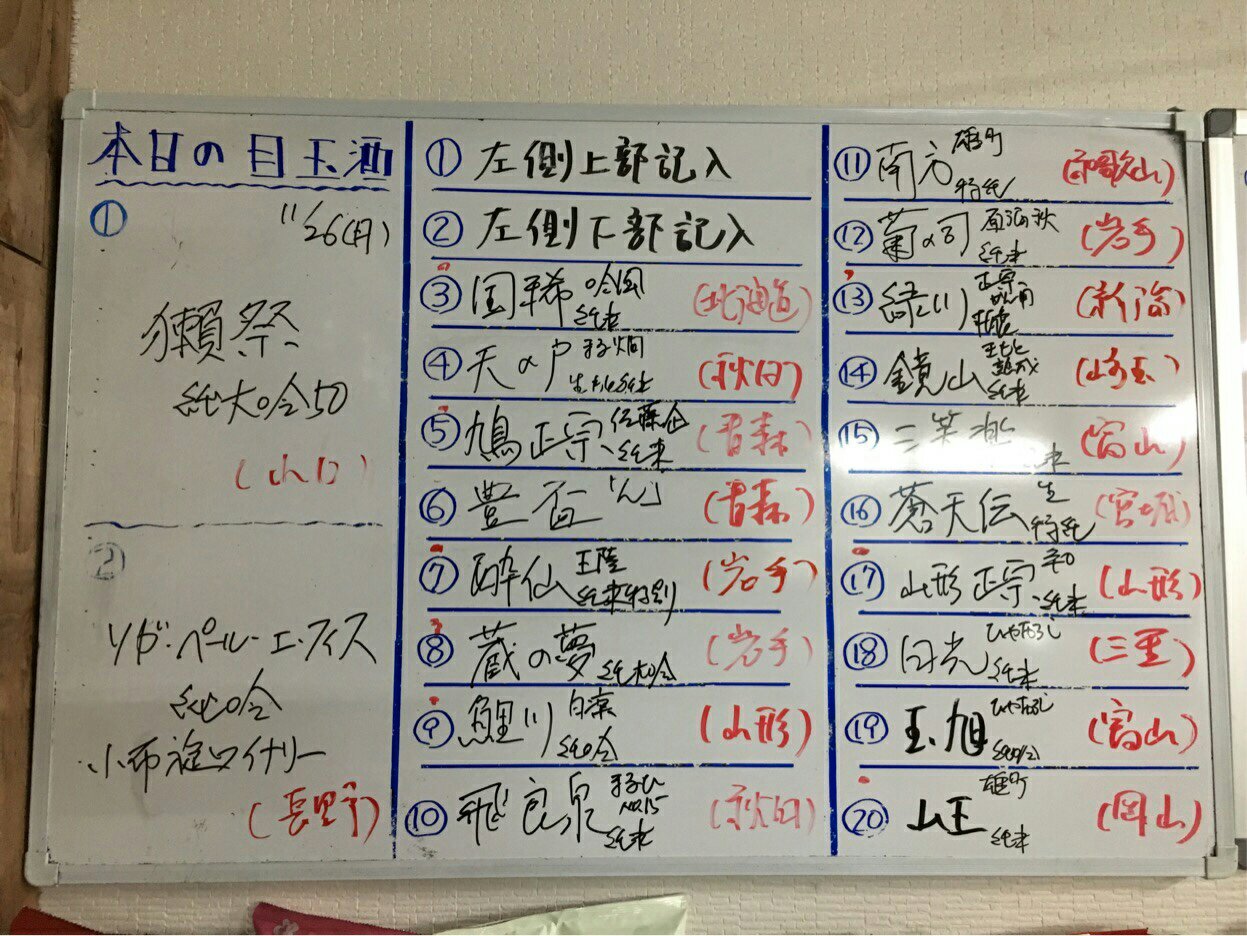 本日の目玉酒
①
11/26(月)
獺祭
純大吟50
(山口)
②
ソガ・ペール・エ・フィス
純吟
小布施ワイナリー
(長野)
① 左側上部記入
② 左側下部記入
③ 国稀 吟風 純米 (北海道)
④ 天の戸 純米 (秋田)
⑤ 鳩正宗 佐藤企 純米 (青森)
⑥ 豊盃「ん」 (青森)
⑦ 酔仙 純米特別 (岩手)
⑧ 蔵の夢 純大吟 (岩手)
⑨ 鯉川 純吟 (山形)
⑩ 飛良泉 No.15 純米 (秋田)
⑪ 南方 雄町 特純 (和歌山)
⑫ 菊の司 純米 (岩手)
⑬ 緑川 (新潟)
⑭ 鏡山 純米 (埼玉)
⑮ 三笑楽 (富山)
⑯ 蒼天伝 生 特純 (宮城)
⑰ 山形正宗 純米 (山形)
⑱ 日光 ひやおろし 純米 (三重)
⑲ 玉旭 ひやおろし (富山)
⑳ 雄町 純米 (岡山)